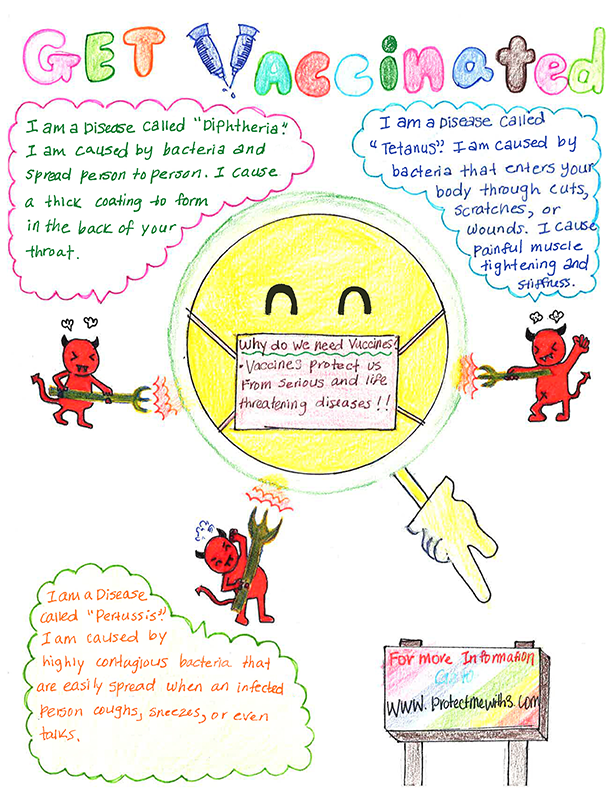 GET Vaccinated
I am a Disease called "Diphtheria".
I am caused by bacteria and
spread person to person. I cause
a thick coating to form
in the back of your
throat.
I am a Disease called
"Tetanus". I am caused by
bacteria that enters your
body through cuts,
scratches, or
wounds. I cause
Painful muscle
tightening and
stiffness.
Why do we need Vaccines?
• Vaccines protect us
From serious and life
threatening diseases!!
I am a Disease
called "Pertussis".
I am caused by
highly contagious bacteria that
are easily spread when an infected
person coughs, sneezes, or even
talks.
For more Information
Go to
WWW.protectmewith3.com